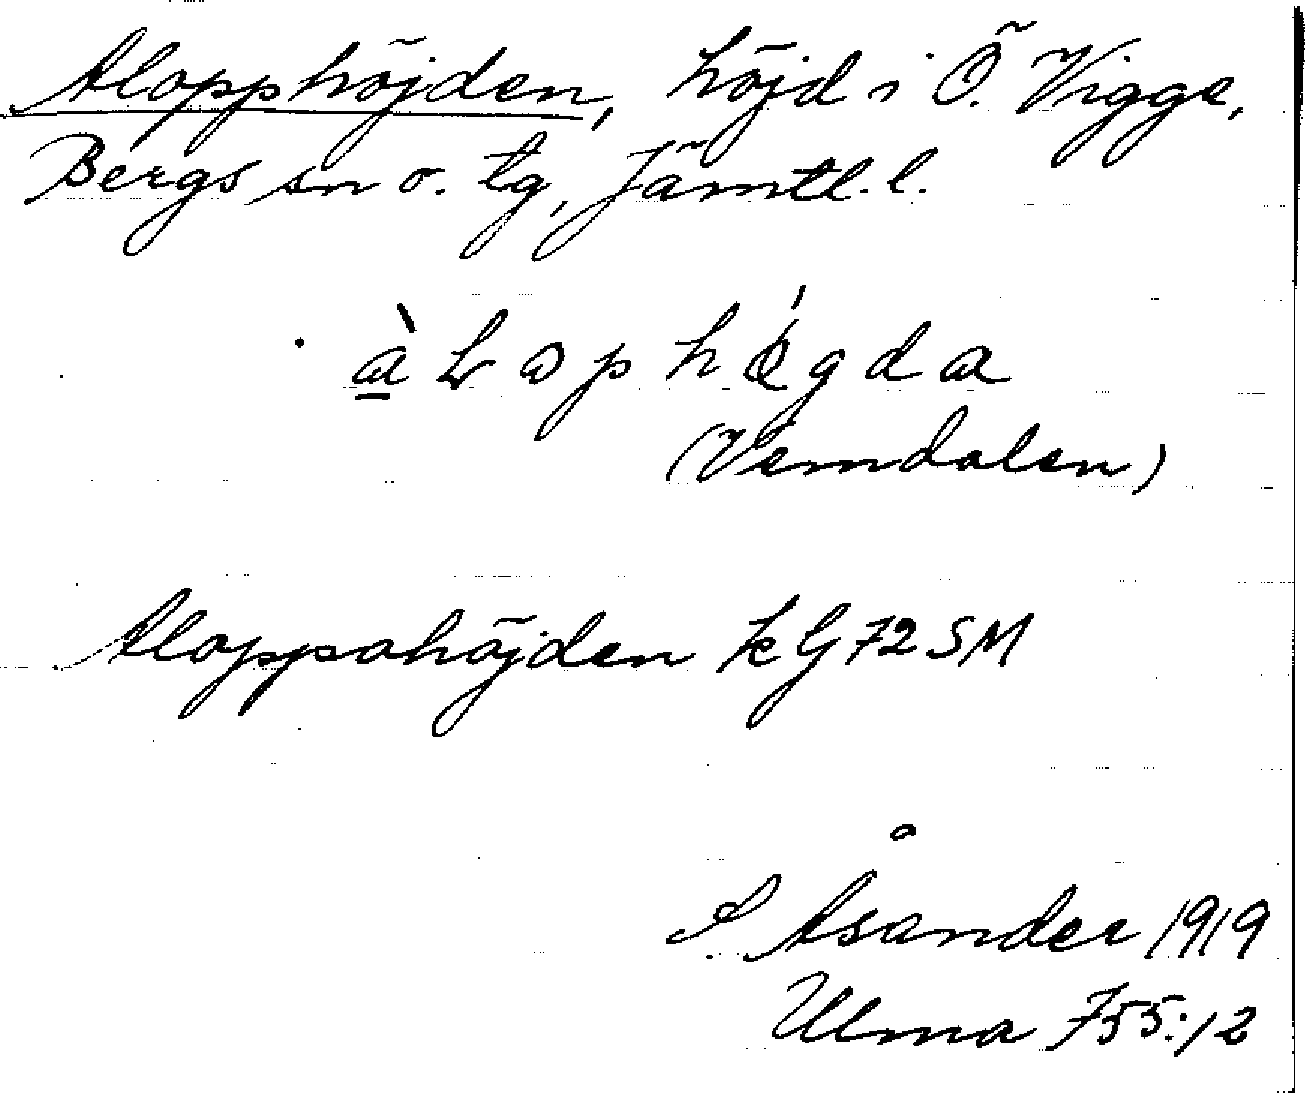 Alopphöjden, höjd i Ö. Vigge,
Bergs sn o. tg, Jämtl. l.
àLophǿgda
(Vemdalen)
Aloppahöjden kG 72 SM
S Åsander 1919
Ulma 755:12